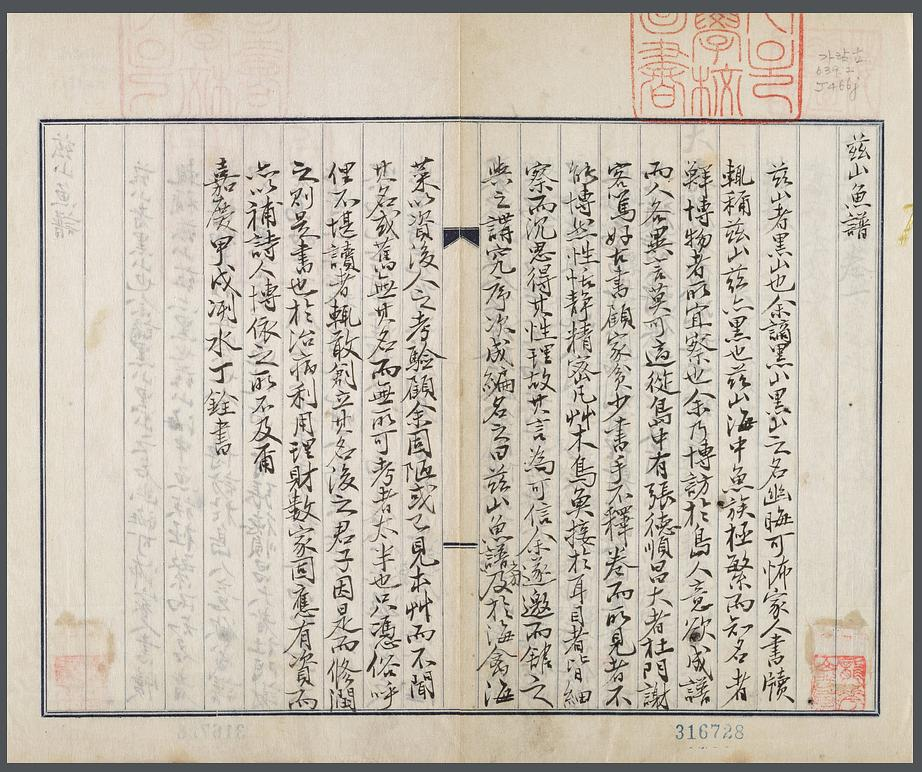 茲山魚譜
茲山者黑山也余謫黑山黑山之名幽晦可怖家人書牘
輒稱茲山茲亦黑也茲山海中魚族極繁而知名者
鮮博物者所宜察也余乃博訪於島人意欲成譜
而人各異言莫可適從島中有張德順昌大者杜門謝
客篤好古書顧家貧少書手不釋卷而所見者不
能博然性恬靜精密凡艸木鳥魚接於耳目者皆細
察而沉思得其性理故其言為可信余遂邀而舘之
與之講究序次成編名之曰茲山魚譜旁及於海禽海
菜以資後人之考驗顧余固陋或已見本艸而不聞
其名或舊無其名而無所可考者太半也只憑俗呼
俚不堪讀者輒敢創立其名後之君子因是而修潤
之則是書也於治病利用理財數家固應有資而
亦以補詩人博依之所不及爾
嘉慶甲戌洌水丁銓書
가람古
639.2
J466j
316728